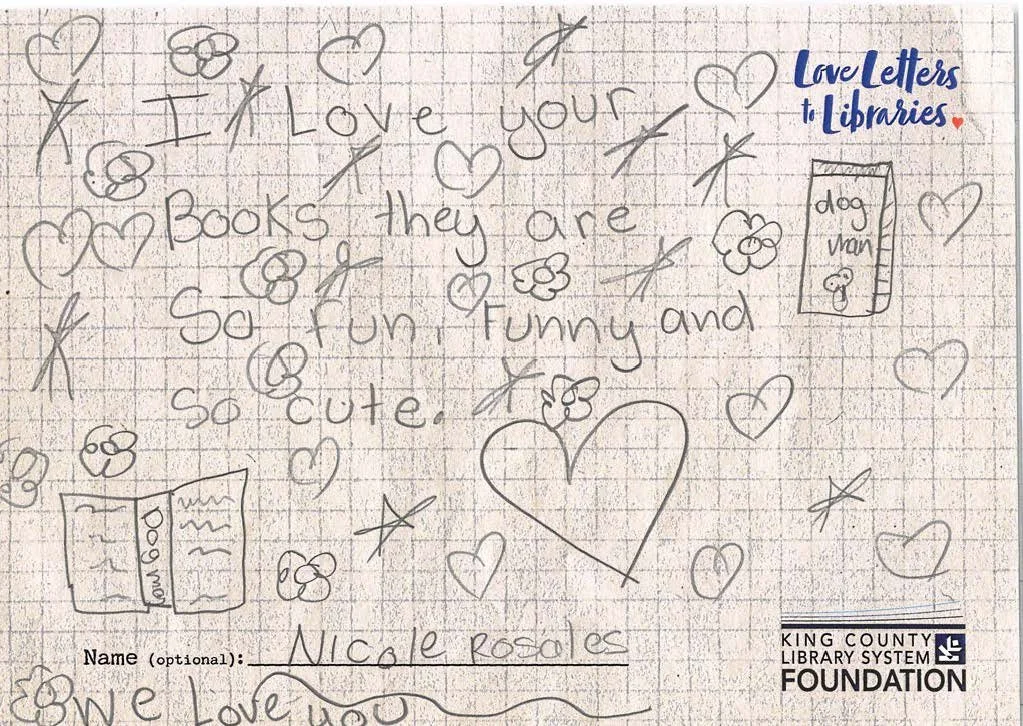 Love Letters
to Libraries
I Love your
Books they are
So fun, Funny and
So cute.
dog
man
Dogman
Name (optional): Nicole Rosales
We Love you
KING COUNTY
LIBRARY SYSTEM
FOUNDATION